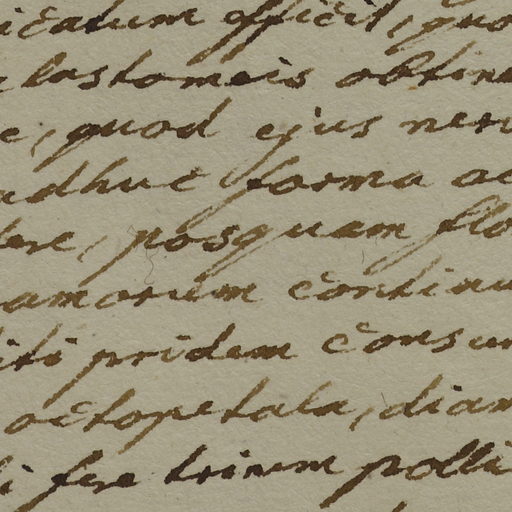 icatum efficit, quo
lastomeis obtine
e, quod ejus nerv
adhuc forma ac
ere, posquam flo
amorum continu
iti pridem consum
octopetala, diam
i fere trium polli